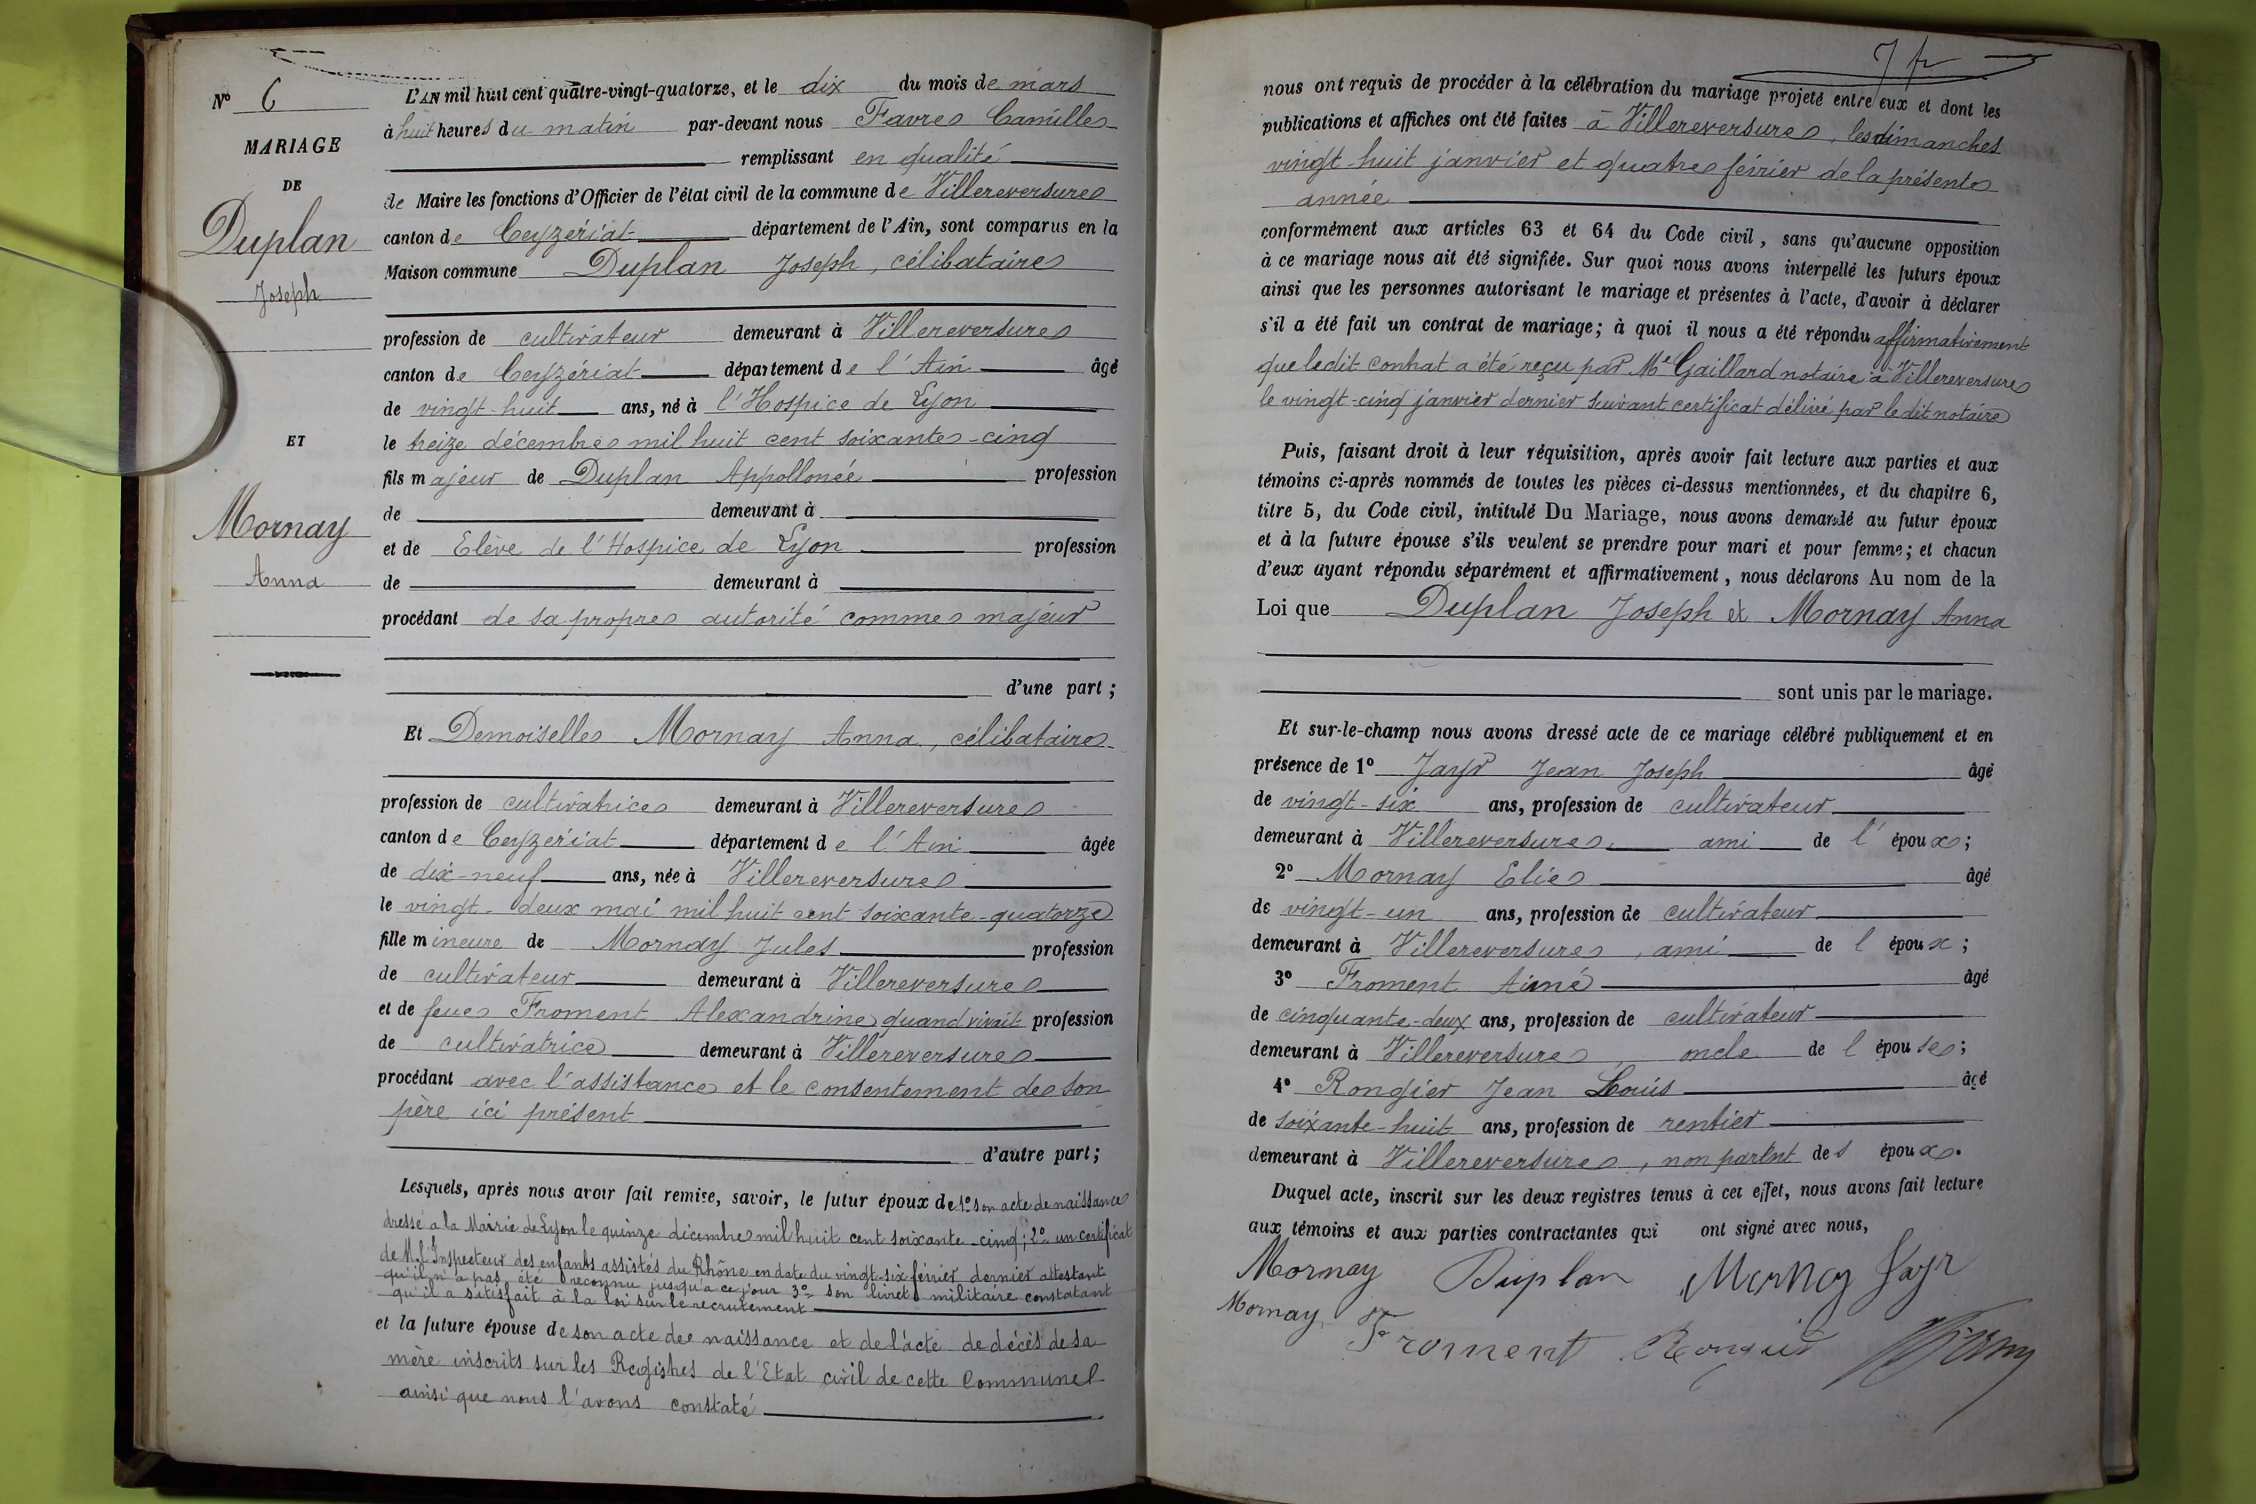 N° 6
MARIAGE
DE
Duplan
Joseph
ET
Mornay
Anna
L'AN mil huit cent quatre-vingt-quatorze, et le dix du mois de mars
à huit heures du matin par-devant nous Favre Camille
remplissant en qualité
de Maire les fonctions d'Officier de l'état civil de la commune de Villereversure
canton de Ceyzériat département de l'Ain, sont comparus en la
Maison commune Duplan Joseph, célibataire
profession de cultivateur demeurant à Villereversure
canton de Ceyzériat département de l'Ain âgé
de vingt-huit ans, né à l'Hospice de Lyon
le treize décembre mil huit cent soixante-cinq
fils majeur de Duplan Appollonée profession
de demeurant à
et de Elève de l'Hospice de Lyon profession
de demeurant à
procédant de sa propre autorité comme majeur
d'une part ;
Et Demoiselle Mornay Anna, célibataire
profession de cultivatrice demeurant à Villereversure
canton de Ceyzériat département de l'Ain âgée
de dix-neuf ans, née à Villereversure
le vingt-deux mai mil huit cent soixante-quatorze
fille mineure de Mornay Jules profession
de cultivateur demeurant à Villereversure
et de feue Froment Alexandrine quand vivait profession
de cultivatrice demeurant à Villereversure
procédant avec l'assistance et le consentement de son
père ici présent
d'autre part ;
Lesquels, après nous avoir fait remise, savoir, le futur époux de 1° son acte de naissance
dressé a la Mairie de Lyon le quinze décembre mil huit cent soixante-cinq ; 2° un certificat
de M. l'Inspecteur des enfants assistés du Rhône en date du vingt-six février dernier attestant
qu'il n'a pas été reconnu jusqu'a ce jour 3° son livret militaire constatant
qu'il a satisfait à la loi sur le recrutement
et la future épouse de son acte de naissance et de l'acte de décès de sa
mère inscrits sur les Registres de l'Etat civil de cette Commune
ainsi que nous l'avons constaté
7
nous ont requis de procéder à la célébration du mariage projeté entre eux et dont les
publications et affiches ont été faites à Villereversure, les dimanches
vingt-huit janvier et quatre février de la présente
année
conformément aux articles 63 et 64 du Code civil, sans qu'aucune opposition
à ce mariage nous ait été signifiée. Sur quoi nous avons interpellé les futurs époux
ainsi que les personnes autorisant le mariage et présentes à l'acte, d'avoir à déclarer
s'il a été fait un contrat de mariage ; à quoi il nous a été répondu affirmativement
que ledit contrat a été reçu par Me Gaillard notaire à Villereversure
le vingt-cinq janvier dernier suivant certificat délivré par ledit notaire
Puis, faisant droit à leur réquisition, après avoir fait lecture aux parties et aux
témoins ci-après nommés de toutes les pièces ci-dessus mentionnées, et du chapitre 6,
titre 5, du Code civil, intitulé Du Mariage, nous avons demandé au futur époux
et à la future épouse s'ils veulent se prendre pour mari et pour femme ; et chacun
d'eux ayant répondu séparément et affirmativement, nous déclarons Au nom de la
Loi que Duplan Joseph et Mornay Anna
sont unis par le mariage.
Et sur-le-champ nous avons dressé acte de ce mariage célébré publiquement et en
présence de 1° Jayr Jean Joseph âgé
de vingt-six ans, profession de cultivateur
demeurant à Villereversure, ami de l'époux ;
2° Mornay Elie âgé
de vingt-un ans, profession de cultivateur
demeurant à Villereversure, ami de l époux ;
3° Froment Aimé âgé
de cinquante-deux ans, profession de cultivateur
demeurant à Villereversure, oncle de l épouse ;
4° Rongier Jean Louis âgé
de soixante-huit ans, profession de rentier
demeurant à Villereversure, non parent des époux.
Duquel acte, inscrit sur les deux registres tenus à cet effet, nous avons fait lecture
aux témoins et aux parties contractantes qui ont signé avec nous,
Mornay Duplan Mornay Jayr
Mornay Froment Rongier